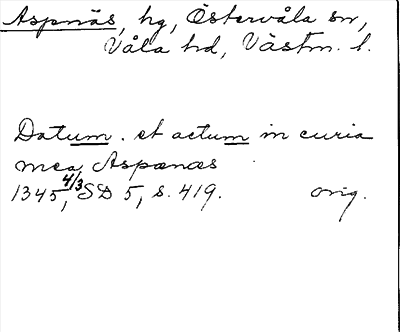 Aspnäs, hg, Östervåla sn,
Våla hd, Västm. l.
Datum. et actum in curia
mea Aspænæs
1345, 4/3 SD 5, s. 419. orig.